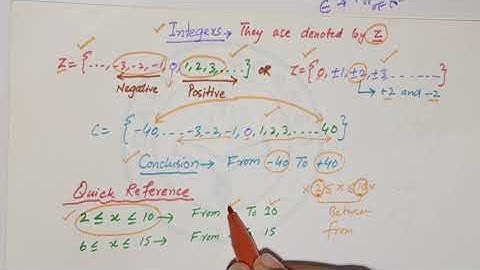 Integers → They are denoted by Z
Z = {..., -3, -2, -1, 0, 1, 2, 3, ....} OR Z = {0, ±1, ±2, ±3, .......}
Negative Positive +2 and -2
C = {-40, ... -3, -2, -1, 0, 1, 2, 3, ..... 40}
Conclusion → From -40 To +40
Quick Reference
2 ≤ x ≤ 10 → From To 20
6 ≤ x ≤ 15 → From 15
x 2 ≤ x ≤ 10 x
Between
from